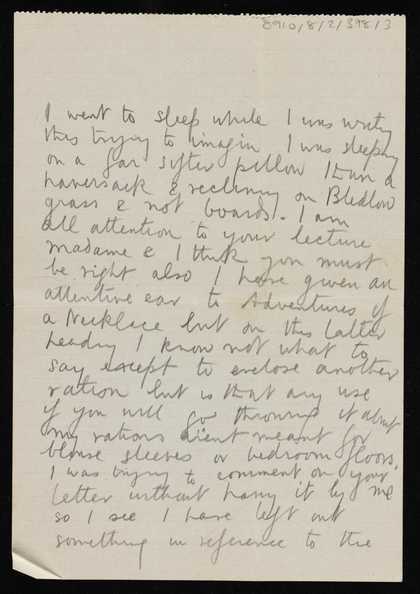 8910/8/2/398/3
I went to sleep while I was writing
this trying to imagin I was sleeping
on a far softer pillow than a
haversack & reclining on Bledlow
grass & not boards. I am
all attention to your lecture
madame & I think you must
be right also I have given an
attentive ear to Adventures of
a Necklace but on this latter
heading I know not what to
say except to enclose another
ration but is that any use
if you will go throwing it about
my rations aren't meant for
blouse sleeves or bedroom floors.
I was trying to comment on your
letter without having it by me
so I see I have left out
something in reference to the